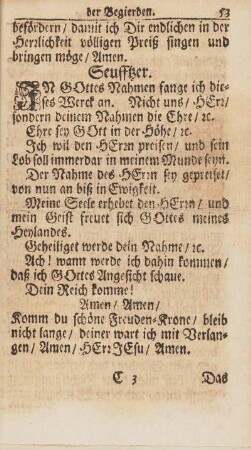 der Begierden. 53
befördern / damit ich Dir endlichen in der
Herrlichkeit völligen Preiß singen und
bringen möge / Amen.
Seufftzer.
IN GOttes Nahmen fange ich die-
ses Werck an. Nicht uns / HErr /
sondern deinem Nahmen die Ehre / ꝛc.
Ehre sey GOtt in der Höhe / ꝛc.
Ich wil den HErrn preisen / und sein
Lob soll immerdar in meinem Munde seyn.
Der Nahme des HErrn sey gepreiset /
von nun an biß in Ewigkeit.
Meine Seele erhebet den HErrn / und
mein Geist freuet sich GOttes meines
Heylandes.
Geheiliget werde dein Nahme / ꝛc.
Ach! wann werde ich dahin kommen /
daß ich GOttes Angesicht schaue.
Dein Reich komme!
Amen / Amen /
Komm du schöne Freuden-Krone / bleib
nicht lange / deiner wart ich mit Verlan-
gen / Amen / HErr JEsu / Amen.
C 3 Das